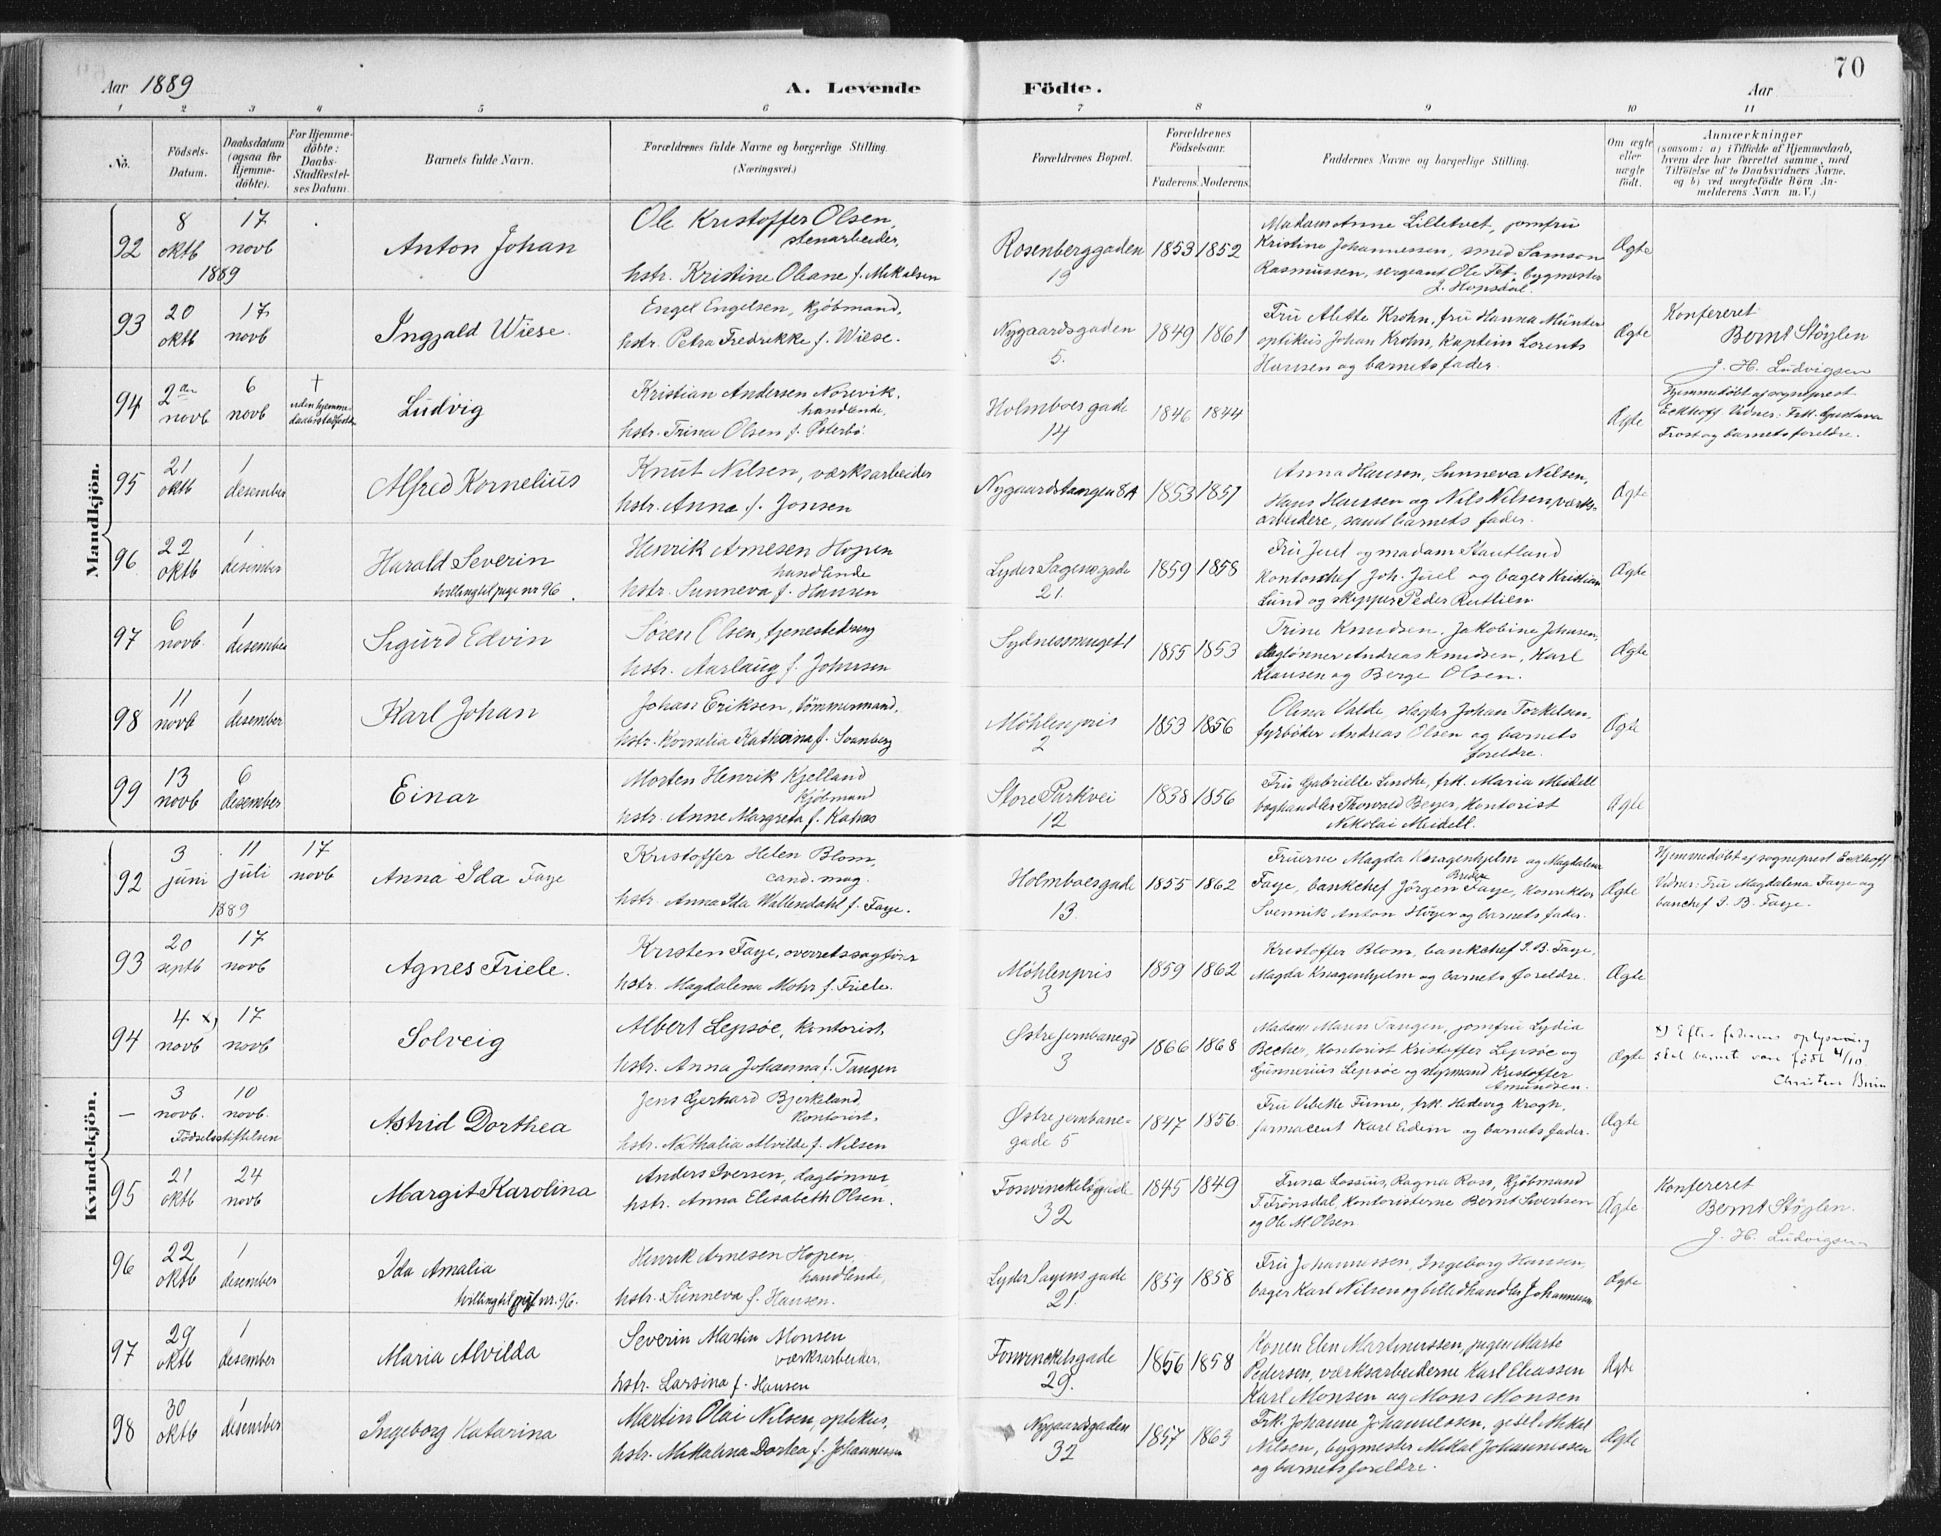 70
Aar 1889 A. Levende Födte. Aar
1 2 3 4 5 6 7 8 9 10 11
No. Födsels-Datum. Daabsdatum (ogsaa för Hjemme-döbte). For Hjemme-döbte: Daabs-Stadfæstel-ses Datum. Barnets fulde Navn. Forældrenes fulde Navne og borgerlige Stilling. (Næringsvei.) Forældrenes Bopæl. Forældrenes Födselsaar. Faderens. Moderens. Faddernes Navne og borgerlige Stilling. Om ægte eller uægte födt. Anmærkninger
(saasom: a) i Tilfælde af Hjemmedaab,
hvem der har forrettet samme, med
Tilföielse af to Daabsvidners Navne,
og b) ved uægtefödte Börn An-
melderens Navn m. V.)
Mandkjön.
92 8 oktb 1889 17 novb Anton Johan Ole Kristoffer Olsen, stenarbeider,
hstr. Kristine Oleane f. Mikalsen
Rosenberggaden 19 1853 1852 Madam Anne Lilletvet, jomfru
Kristine Johannessen, smed Samson
Rasmussen, sergeant Ole Tet, bygmester
J. Hopsdal. Ægte
93 20 oktb 17 novb Ingjald Wiese. Engel Engelsen, kjøbmand,
hstr. Petra Fredrikke f. Wiese.
Nygaardsgaden 5. 1849 1861 Fru Alette Krohn, fru Hanna Münter
optikus Johan Krohn, kaptein Lorents
Hansen og barnets fader. Ægte Konfereret
Bernt Støylen
J. H. Ludvigsen
94 2den novb 6 novb † uden hjemmedaabsstadfæst. Ludvig Kristian Andersen Norevik, handlende,
hstr. Trina Olsen f. Østerbø.
Holmboesgade 14 1846 1844 Ægte Hjemmedøbt af sogneprest
Eckhoff Vidner: Frk. Gustava
Frost og barnets foreldre.
95 21 oktb 1 desember Alfred Kornelius Knut Nilsen, værksarbeider
hstr. Anna f. Jonsen
Nygaardstangen 8A 1853 1857 Anna Hansen, Sunneva Nilsen,
Hans Hanssen og Nils Nilsen, værks-
arbeidere, samt barnets fader. Ægte
96 22 oktb 1 desember Harald Severin
tvilling til pige nr 96. Henrik Arnesen Hopen handlende
hstr. Sunneva f. Hansen
Lyder Sagensgade 21. 1859 1858 Fru Juel og madam Stautland
kontorchef Joh. Juel og bager Kristian
Lund og skipper Peder Rutlien. Ægte
97 6 novb. 1 desember Sigurd Edvin Søren Olsen, tjenestedreng
hstr. Aarlaug f. Johnsen
Sydnessmuget 1 1855 1853 Trine Knudsen, Jakobine Johnsen,
daglønner Andreas Knudsen, Karl
Klausen og Berge Olsen. Ægte
98 11 novb 1 desember Karl Johan Johan Eriksen, tømmermand,
hstr. Kornelia Katharina f. Svanberg
Möhlenpris 2 1853 1856 Olina Valde, slagter Johan Torkelsen,
fyrbøder Andreas Olsen og barnets
foreldre. Ægte
99 13 novb 6 desember Einar Morten Henrik Kjelland kjøbmand
hstr. Anne Margreta f. Kahrs
Store Parkvei 12 1838 1856 Fru Gabrielle Lindtke, frk. Maria Meidell
boghandler Thorvald Beyer, kontorist
Nikolai Meidell. Ægte
Kvindekjön.
92 3 juni 1889 11 juli 17 novb Anna Ida Faye Kristoffer Helen Blom, cand. mag.
hstr. Anna Ida Wallendahl f. Faye.
Holmboesgade 13. 1855 1862 Fruerne Magda Knagenhjelm og Magdalena
Faye, bankchef Jörgen Breder Faye, konrektor
Svennik Anton Höyer og barnets fader. Ægte Hjemmedøbt af sogneprest Eckhoff
Vidner: Fru Magdalena Faye og
banchef J. B. Faye.
93 20 septb 17 novb Agnes Friele. Kristen Faye, overretssagfører
hstr. Magdalena Mohr f. Friele.
Möhlenpris 3 1859 1862 Kristoffer Blom, bankchef J. B. Faye,
Magda Knagenhjelm og barnets foreldre. Ægte
94 4 x) novb 17 novb Solveig Albert Lepsøe, kontorist,
hstr. Anna Johanna f. Tangen
Østre jernbanegd 3 1866 1868 Madam Maren Tangen, jomfru Lydia
Becher, kontorist Kristoffer Lepsøe og
Gunnerius Lepsøe og styrmand Kristoffer
Amundsen. Ægte x) Efter faderens oplysning
skal barnet være født 4/10
Christen Brun
— 3 novb. 10 novb. Födselsstiftelsen Astrid Dorthea Jens Gerhard Bjerkeland, kontorist,
hstr. Nathalia Alvilde f. Nilsen
Østre jernbane-
gade 5 1847 1856. Fru Vibekke Finne, frk. Hedevig Krogh,
farmaceut Karl Eidem og barnets fader. Ægte
95 21 oktb 24 novb Margit Karolina Anders Iversen, daglønner
hstr. Anna Elisabeth Olsen.
Fosvinckelsgade 32 1845 1849 Anna Lossius, Ragna Ross, kjöbmand
T. Frönsdal, kontoristerne Bernt Sivertsen
og Ole M. Olsen. Ægte. Konfereret
Bernt Støylen.
J. H. Ludvigsen
96 22 oktb 1 desember Ida Amalia
tvilling til gut nr. 96. Henrik Arnesen Hopen, handlende,
hstr. Sunneva f. Hansen.
Lyder Sagensgade 21. 1859 1858 Fru Johannessen, Ingeborg Hansen,
bager Karl Nilsen og billedhandler Johannessen Ægte
97 29 oktb 1 desember Maria Alvilda Severin Martin Monsen værksarbeider,
hstr. Larsina f. Hansen
Fosvinckelsgade 29. 1856 1858 Konen Elen Martinussen, pigen Marta
Pedersen, værksarbeiderne Karl Eliassen
Karl Monsen og Mons Monsen Ægte
98 30 oktb 1 desember Ingeborg Katarina Martin Olai Nilsen, optikus,
hstr. Mikalina Dortea f. Johannessen
Nygaardsgaden 32 1857 1863 Frk. Johanne Johannessen, gesel Mikal
Nilsen, bygmester Mikal Johannessen
og barnets foreldre. Ægte